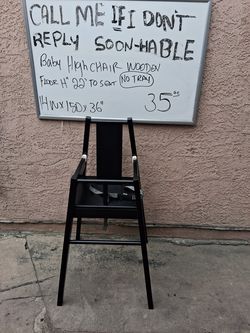 CALL ME IF I DON'T
REPLY SOON-HABLE
Baby HigH CHAIR WOODEN
FLOOR H" 22" TO SEAT (NO TRAY)
14"W X 15D X 36" 35°°